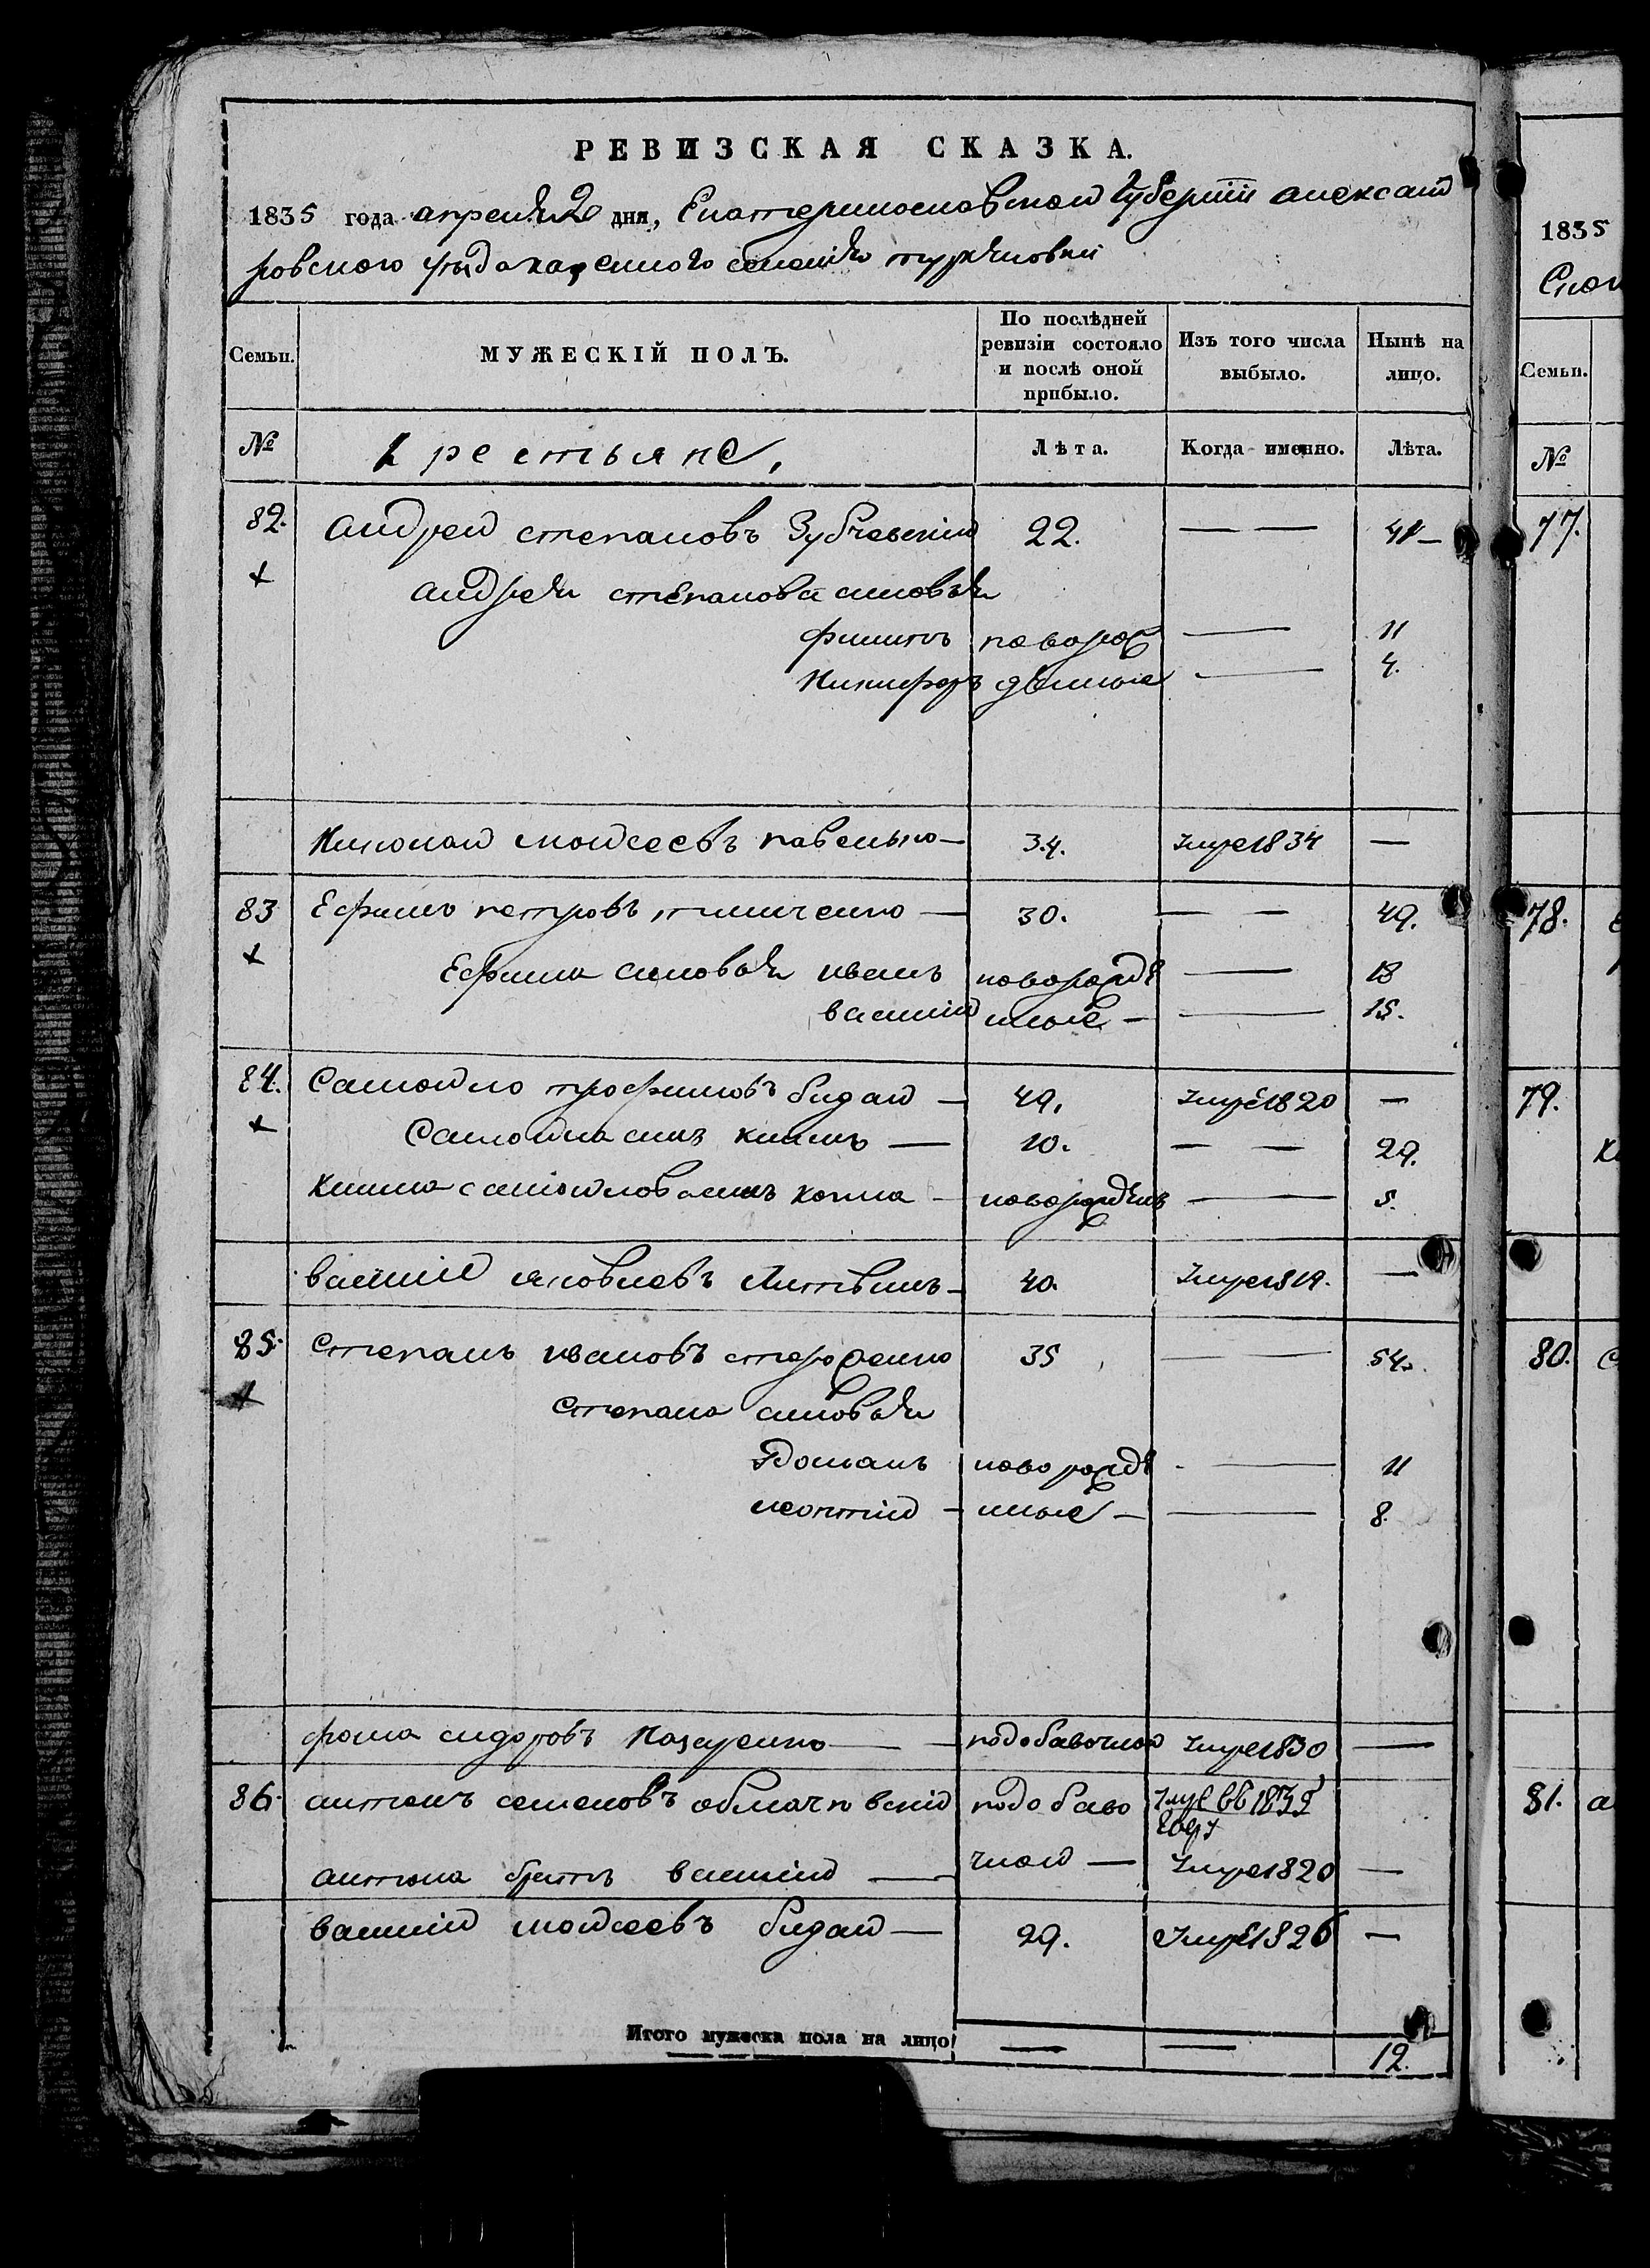 РЕВИЗСКАЯ СКАЗКА.
1835 года апреля 20 дня, Екатеринославской Губерніи александ
ровского уезда казенного селенія туркеновки
Семьи. МУЖЕСКІЙ ПОЛЪ. По послѣдней ревизіи состояло и послѣ оной прибыло. Изъ того числа выбыло. Нынѣ на лицо.
№ крестьяне, Лѣта. Когда именно. Лѣта.
82. андрей степановъ Зубчевскій 22. — — 41 —
андрея степанова сыновья
филипъ новорож — 11
Никифоръ денные — 4.
Николай моисеевъ павленко — 34. Умре 1834 —
83 Ефимъ петровъ тимченко — 30. — — 49.
Ефима сыновья иванъ новорожде — 18
василій нные — — 15.
84. Самойло трофимовъ бидай — 49. Умре 1820 —
Самойла сынъ климъ — 10. — — 29.
Клима самойлова сынъ копма — новорожденъ — — 5.
василій яковлевъ Литвинъ — 40. Умре 1819. —
85. Степанъ ивановъ стороженко 35 — 54.
Степана сыновья
Романъ новорожде — 11
леонтій — нные — — 8.
фома сидоровъ Назаренко — подобавочной Умре 1830 —
86. антонъ семеновъ облачковскій подобаво Умре въ 1835
году
антона братъ василій — чной — Умре 1820 —
василій моисеевъ бидай — 29. Умре 1826 —
Итого мужеска пола на лицо — — 12.
1835
Семьи.
№
77.
78.
79.
80.
81.